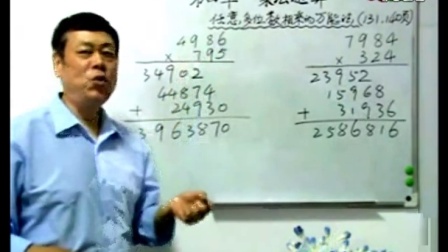 任意多位数相乘的万能法,(131.140页)
4986
× 795
34902
44874
+ 24930
3963870
7984
× 324
23952
15968
+ 31936
2586816